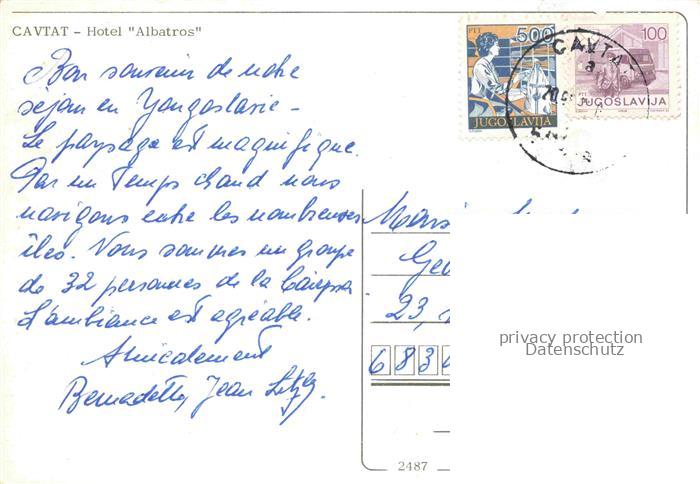 CAVTAT - Hotel "Albatros"
Bon souvenir de notre
séjour en Yougoslavie -
Le paysage est magnifique.
Par un temps chaud nous
navigons entre les nombreuses
îles. Nous sommes un groupe
de 32 personnes de la
L'ambiance est agréable.
Amicalement
Bernadette, Jean
PTT 500
JUGOSLAVIJA
100
PTT
JUGOSLAVIJA
CAVTA
a
23,
683
2487
privacy protection
Datenschutz